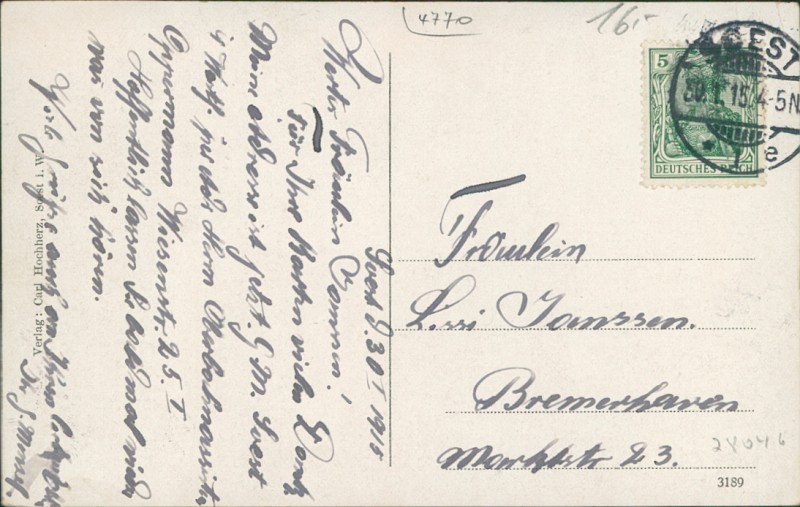 4770
16,-
SOEST
30.1.15.4-5N
* 1 e
5
DEUTSCHES REICH
Soest d. 30 I 1915
Wertes Fräulein
Für Ihre Karten vielen Dank
Meine Adresse ist jetzt. G. M. Soest
i/ Westf. per Adr. Herrn
Oppermann Wiesenstr. 25. I
Hoffentlich lassen Sie bald mal wieder
was von sich hören.
Viele Grüße auch an Ihren
Verlag: Carl Hochherz, Soest i. W.
Fräulein
Lissi Janssen.
Bremerhaven
Marktstr 23.
28046
3189